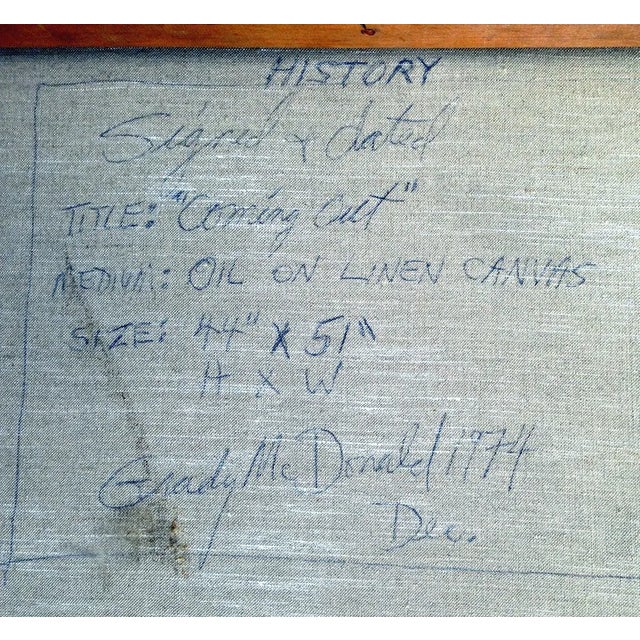 HISTORY
Signed & dated
TITLE: "Coming Out"
MEDIUM: OIL ON LINEN CANVAS
SIZE: 44" X 51"
H X W
Grady McDonald 1974
Dec.